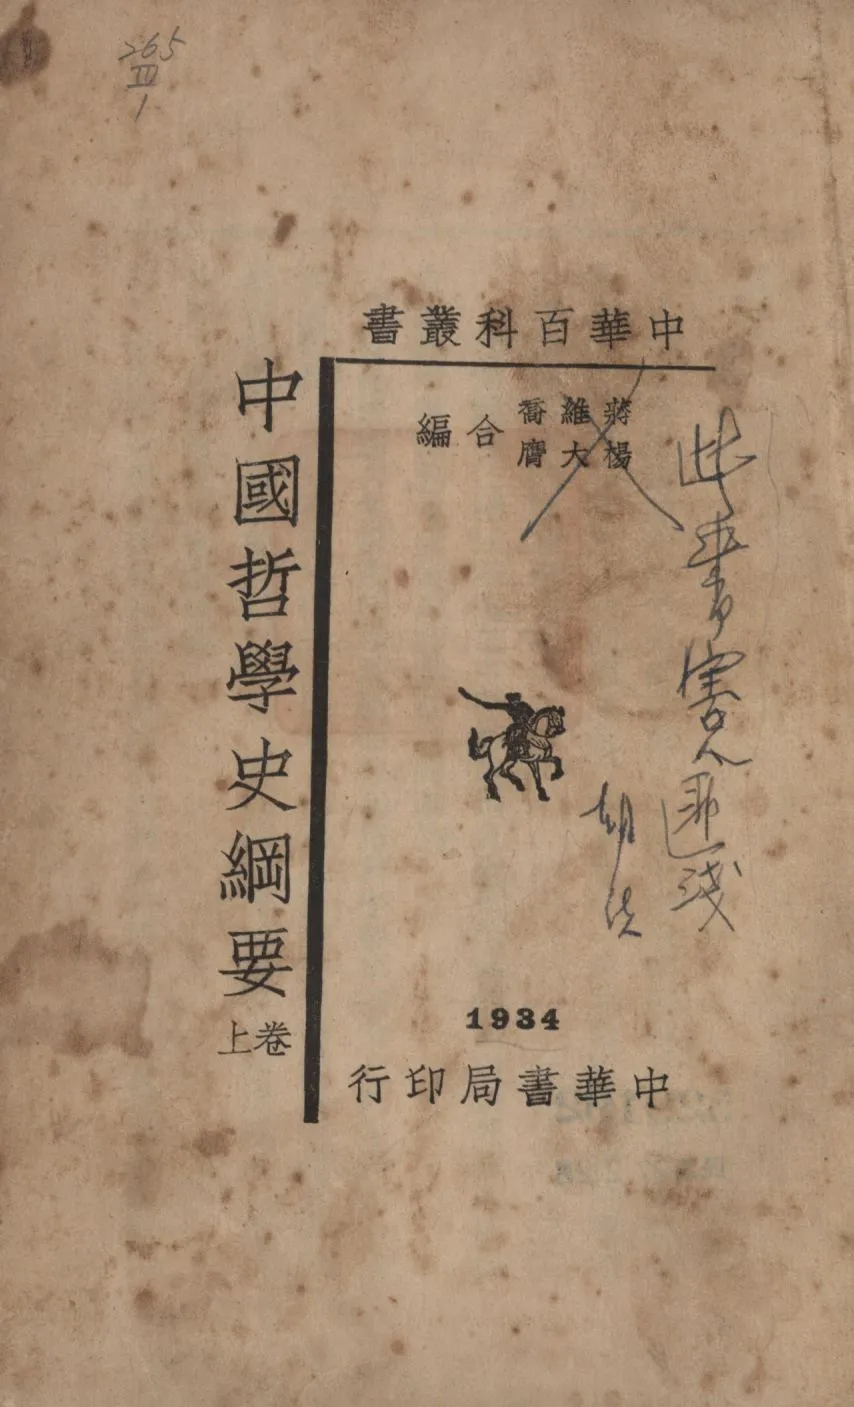 265
IV
1
中華百科叢書
蔣維喬
楊大膺
合編
此書害人匪淺
中國哲學史綱要
卷上
1934
中華書局印行